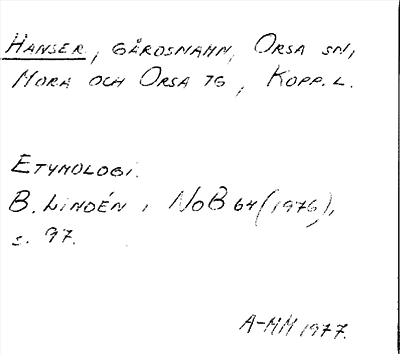 HANSER, GÅRDSNAMN, ORSA SN,
MORA OCH ORSA TG, KOPP. L.
ETYMOLOGI.
B. LINDÉN i NoB 64 (1976),
s. 97.
A-MM 1977.